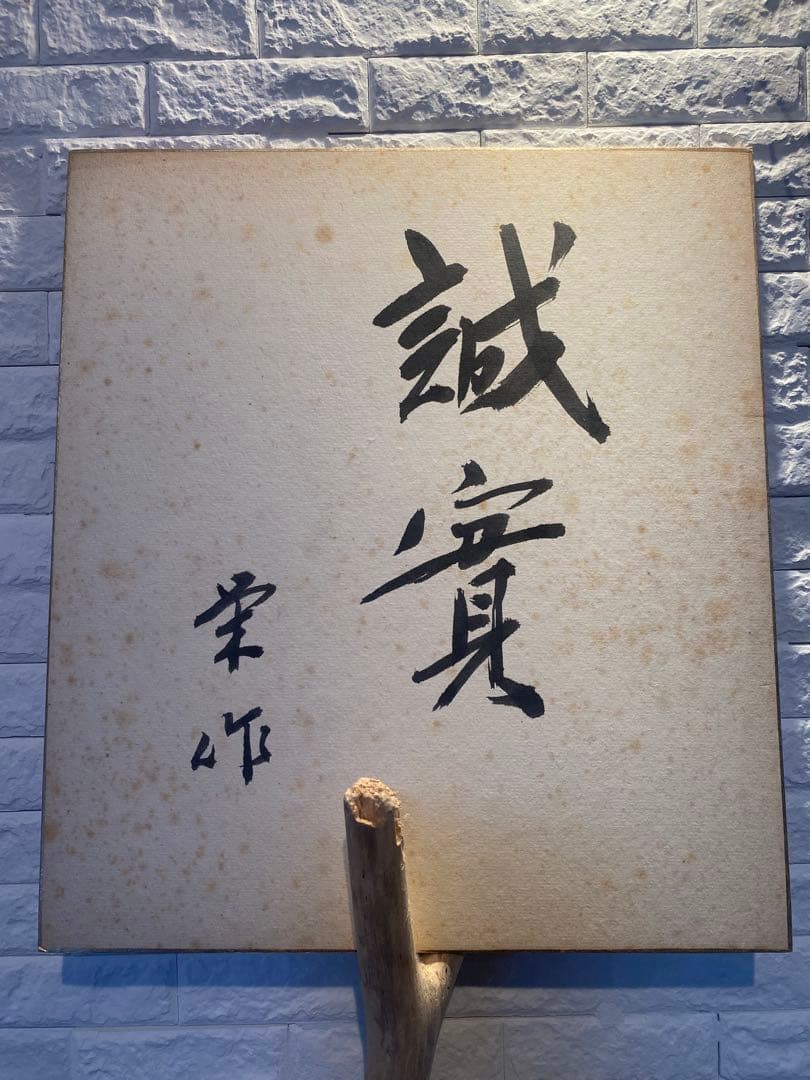 誠實
栄作